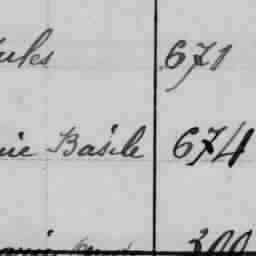 ules 671
ie Basile 674
300